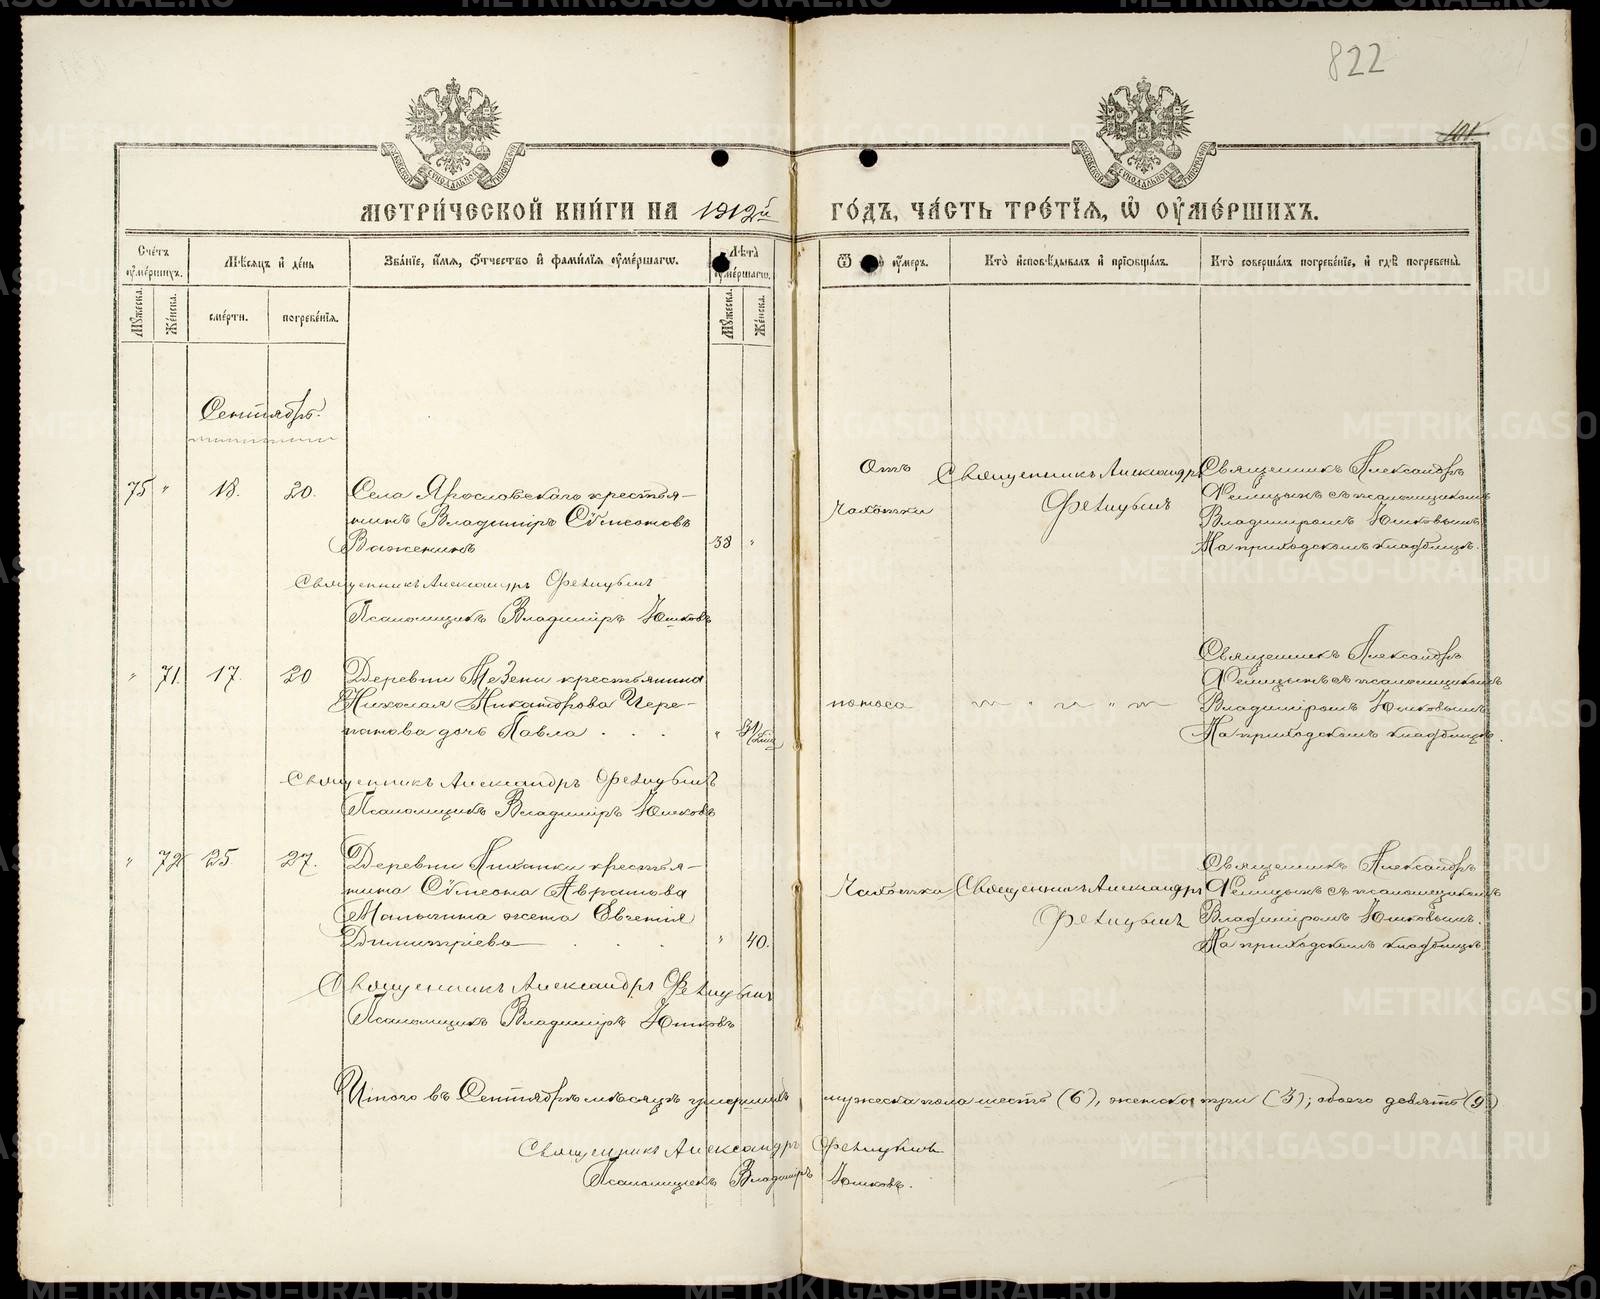 822
101.
МЕТРИЧЕСКОЙ КНИГИ НА 1912й ГОДЪ, ЧАСТЬ ТРЕТІЯ, Ѿ ОУМЕРШИХЪ.
Счетъ оумершихъ.
Мужеска.
Женска.
Мѣсяцъ и день
смерти.
погребенія.
Званіе, имя, отчество и фамилія оумершагѡ.
Лѣта оумершагѡ.
Мужеска.
Женска.
Ѿ оумеръ.
Кто исповѣдывалъ и пріобщалъ.
Кто совершалъ погребеніе, и гдѣ погребены.
Сентябрь.
75 " 18. 20. Села Ярославскаго крестья-
нинъ Владиміръ Сѵмеоновъ
Важенинъ 33 "
Отъ
чахотки
Священникъ Александръ
Фелицынъ
Священникъ Александръ
Фелицынъ съ псаломщикомъ
Владиміромъ Юшковымъ
На приходскомъ кладбищѣ.
Священникъ Александръ Фелицынъ
Псаломщикъ Владиміръ Юшковъ
" 71. 17. 20 Деревни Мезени крестьянина
Николая Никандрова Чере-
панова дочь Павла . . . "
поноса
Священникъ Александръ
Фелицынъ съ псаломщикомъ
Владиміромъ Юшковымъ
На приходскомъ кладбищѣ.
Священникъ Александръ Фелицынъ
Псаломщикъ Владиміръ Юшковъ
" 72 25 27. Деревни крестья-
нина Сѵмеона Аврамова
жена Евгенія
Димитріева . . . " 40.
Чахотки
Священникъ Александръ
Фелицынъ
Священникъ Александръ
Фелицынъ съ псаломщикомъ
Владиміромъ Юшковымъ.
На приходскомъ кладбищѣ
Священникъ Александръ Фелицынъ
Псаломщикъ Владиміръ Юшковъ
Итого въ Сентябрѣ мѣсяцѣ умершихъ мужеска пола шесть (6), женска три (3); обоего девять (9)
Священникъ Александръ Фелицынъ
Псаломщикъ Владиміръ Юшковъ.
METRIKI.GASO-URAL.RU